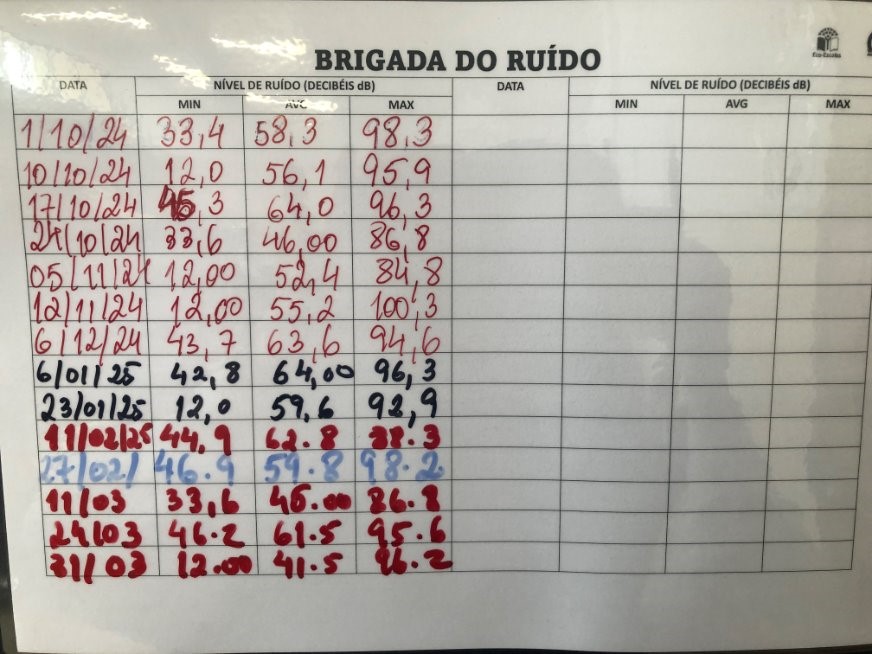 BRIGADA DO RUÍDO
Eco-Escolas
DATA NÍVEL DE RUÍDO (DECIBÉIS dB) DATA NÍVEL DE RUÍDO (DECIBÉIS dB)
MIN AVG MAX MIN AVG MAX
1/10/24 33,4 58,3 98,3
10/10/24 12,0 56,1 95,9
17/10/24 45,3 64,0 96,3
24/10/24 33,6 46,00 86,8
05/11/24 12,00 52,4 84,8
12/11/24 12,00 55,2 100,3
6/12/24 43,7 63,6 94,6
6/01/25 42,8 64,00 96,3
23/01/25 12,0 59,6 92,9
11/02/25 44,9 62.8 88.3
27/02/ 46.9 59.8 98.2
11/03 33,6 46.00 86.8
24/03 46.2 61.5 95.6
31/03 12.00 41.5 96.2